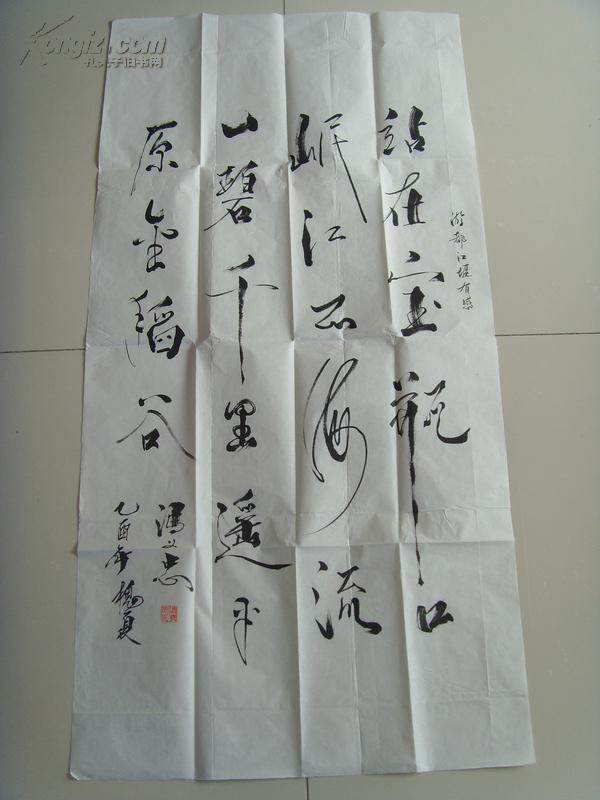 Kongfz.com
孔夫子旧书网
游都江堰有感
站在宝瓶口
岷江海流
山碧千里遥平
原金稻谷
冯忠
乙酉年夏